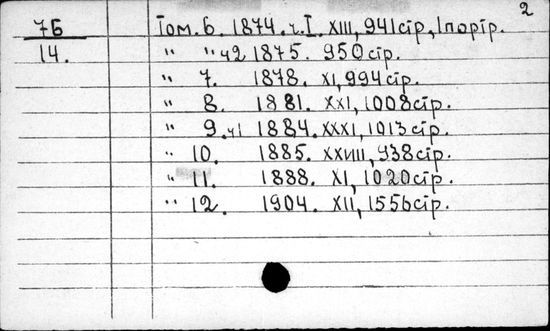 2
7Б Том. 6. 1874. ч. I. XIII, 941 стр., 1 портр.
14. " " ч2 1875. 950 стр.
" 7. 1878. XI, 994 стр.
" 8. 1881. XXI, 1008 стр.
" 9. ч1 1884. XXXI, 1013 стр.
" 10. 1885. XXVIII, 938 стр.
" 11. 1888. XI, 1020 стр.
" 12. 1904. XII, 1556 стр.